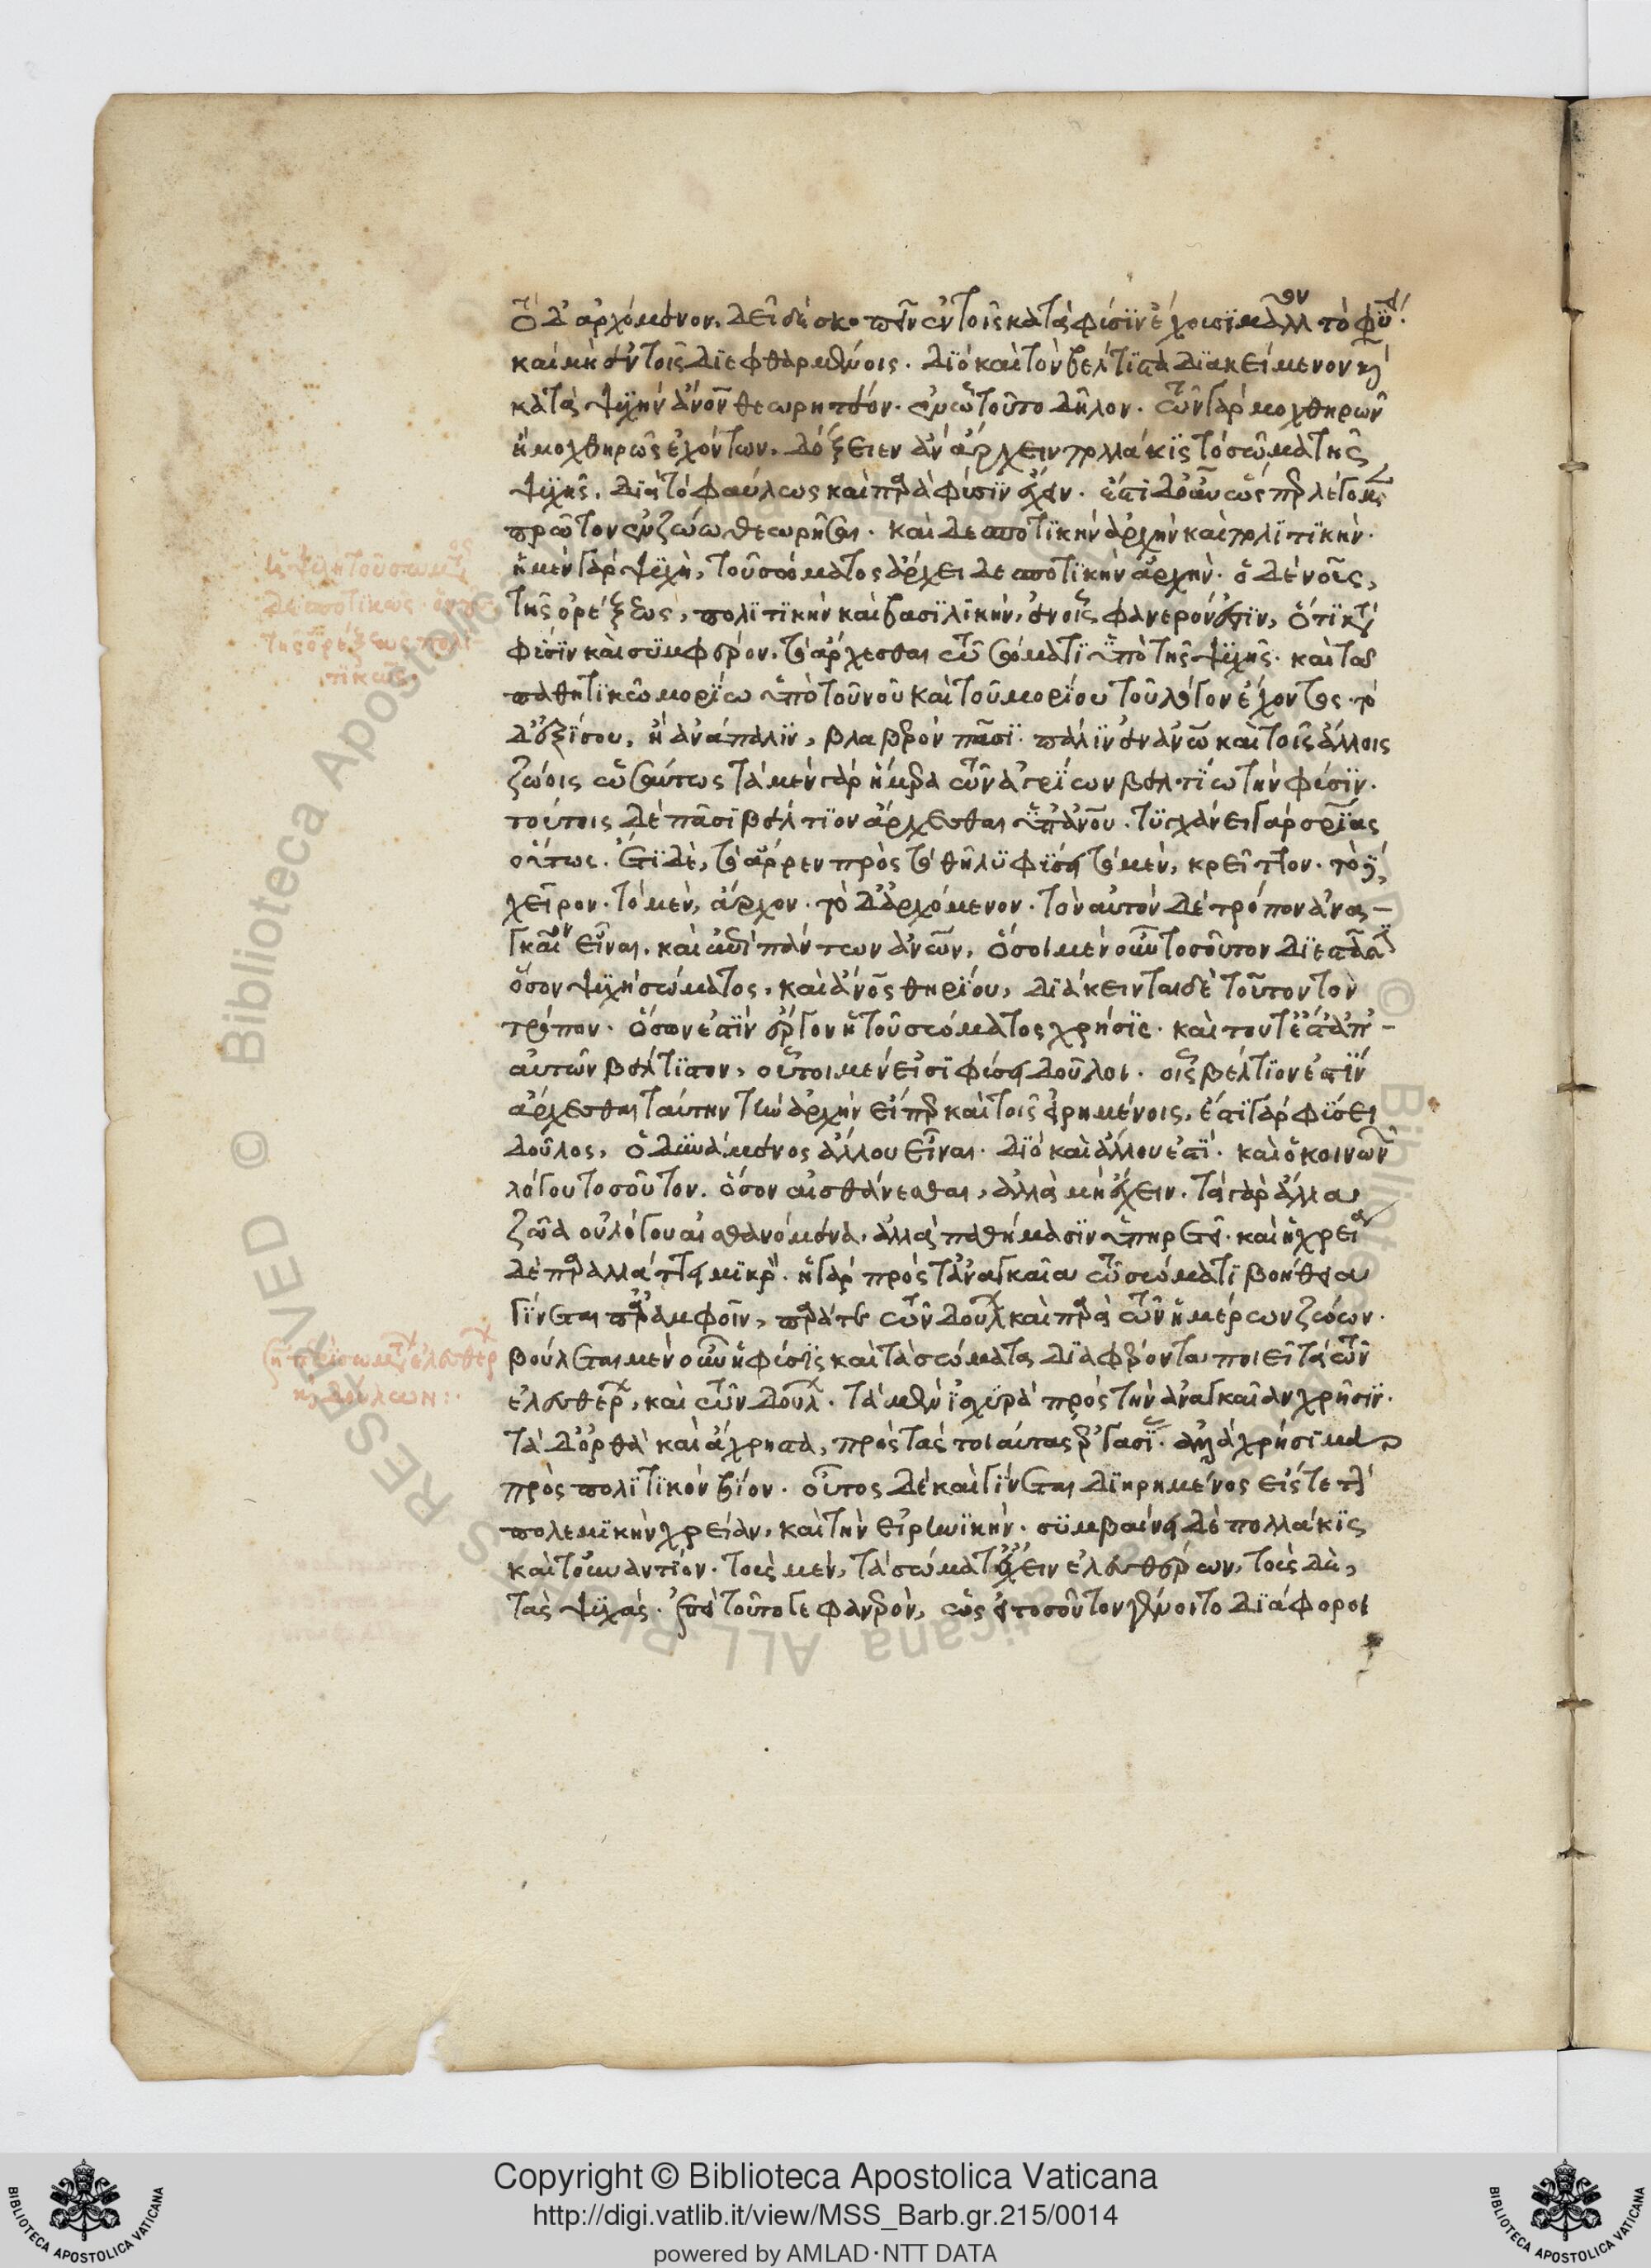 τὸ δ' ἀρχόμενον. δεῖ δὲ σκοπεῖν ἐν τοῖς κατὰ φύσϊν ἔχουσϊ μᾶλλον τὸ φύσει.
καὶ μὴ ἐν τοῖς δϊεφθαρμένοις. δϊὸ καὶ τὸν βέλτϊστα δϊακείμενον καὶ
κατὰ ψϋχὴν ἄνον θεωρητέον. ἐν ᾧ τοῦτο δῆλον. τῶν γὰρ μοχθηρῶν
ἢ μοχθηρῶς ἐχόντων. δόξειεν ἂν ἄρχειν πολλάκϊς τὸ σῶμα τῆς
ψϋχῆς. δϊὰ τὸ φαύλως καὶ παρὰ φύσϊν ἔχειν. ἔστϊ δ' οὖν ὥσπερ λέγομεν
πρῶτον ἐν ζώω θεωρῆσαι. καὶ δεσποτϊκὴν ἀρχὴν καὶ πολϊτϊκήν.
ἡ μὲν γὰρ ψϋχὴ, τοῦ σώματος ἄρχει δεσποτϊκὴν ἀρχήν. ὁ δὲ νοῦς,
τῆς ὀρέξεως, πολϊτϊκὴν καὶ βασϊλϊκήν, ἐν οἷς φανερόν ἐστϊν, ὅτϊ κατὰ
φύσϊν καὶ σϋμφέρον. τὸ ἄρχεσθαι τῶ σώματϊ ὑπὸ τῆς ψϋχῆς. καὶ τῶ
παθητϊκῶ μορϊω ὑπὸ τοῦ νοῦ καὶ τοῦ μορϊου τοῦ λόγον ἔχοντος. τὸ
δ' ἐξ ἴσου, ἢ ἀνάπαλϊν, βλαβερὸν πᾶσϊ. πάλϊν ἐν ἀνῶ καὶ τοῖς ἄλλοις
ζώοις ὡσαύτως τὰ μὲν γὰρ ἥμερα τῶν ἀγρϊων βελτϊω τὴν φύσϊν.
τούτοις δὲ πᾶσϊ βέλτϊον ἄρχεσθαι ὑπ' ἀνου. τϋγχάνει γὰρ σρϊας
οὕτως. ἔτϊ δὲ, τὸ ἄρρεν πρὸς τὸ θῆλϋ φϋσει τὸ μὲν, κρεῖττον. τὸ δὲ,
χεῖρον. τὸ μὲν, ἄρχον. τὸ δ' ἀρχόμενον. τὸν αὐτὸν δὲ τρόπον ἀνα-
γκαῖον εἶναι. καὶ ἐπὶ πάντων ἀνων. ὅσοι μὲν οὖν τοσοῦτον δϊεστᾶσϊ
ὅσον ψϋχὴ σώματος, καὶ ἀνος θηρϊου, δϊάκεινται δὲ τοῦτον τὸν
τρόπον. ὅσων ἐστϊν ἔργον ἡ τοῦ σώματος χρῆσϊς. καὶ τοῦτ' ἔστ' ἀπ'-
αὐτῶν βέλτϊστον, οὗτοι μὲν εἰσϊ φύσει δοῦλοι. οἷς βέλτϊον ἐστϊν
ἄρχεσθαι ταύτην τὴν ἀρχὴν εἴπερ καὶ τοῖς εἰρημένοις. ἔστϊ γὰρ φϋσει
δοῦλος, ὁ δϋνάμενος ἄλλου εἶναι. δϊὸ καὶ ἄλλου ἐστϊ. καὶ ὁ κοινωνῶν
λόγου τοσοῦτον. ὅσον αἰσθάνεσθαι, ἀλλὰ μὴ ἔχειν. τὰ γὰρ ἄλλα
ζῶα οὐ λόγου αἰσθανόμενα. ἀλλὰ παθήμασϊν ὑπηρετεῖ. καὶ ἡ χρεία
δὲ παραλλάττει μϊκρόν. ἡ γὰρ πρὸς τἀναγκαῖα τῶ σώματϊ βοήθεια
γϊνεται παρ' ἀμφοῖν, παρά τε τῶν δούλων καὶ παρὰ τῶν ἡμέρων ζώων.
βούλεται μὲν οὖν ἡ φύσϊς καὶ τὰ σώματα δϊαφέροντα ποιεῖ τὰ τῶν
ἐλευθέρων, καὶ τῶν δούλων. τὰ μὲν ἰσχϋρὰ πρὸς τὴν ἀναγκαῖαν χρῆσϊν.
τὰ δ' ὀρθὰ καὶ ἄχρηστα, πρὸς τὰς τοιαύτας ἐργασϊας. ἀλλὰ χρήσϊμα
πρὸς πολϊτϊκὸν βϊον. οὗτος δὲ καὶ γϊνεται δϊηρημένος εἴς τε τὴν
πολεμϊκὴν χρείαν, καὶ τὴν εἰρηνϊκήν. σϋμβαίνει δὲ πολλάκϊς
καὶ τοὐναντϊον. τοὺς μὲν, τὰ σώματ' ἔχειν ἐλευθέρων, τοὺς δὲ,
τὰς ψϋχάς. ἐπεὶ τοῦτό γε φανερὸν, ὡς εἰ τοσοῦτον γένοιντο δϊάφοροι
ἡ ψϋχὴ τοῦ σώματος
δεσποτϊκῶς. ὁ νοῦς
τῆς ὀρέξεως πολϊ
τϊκῶς.